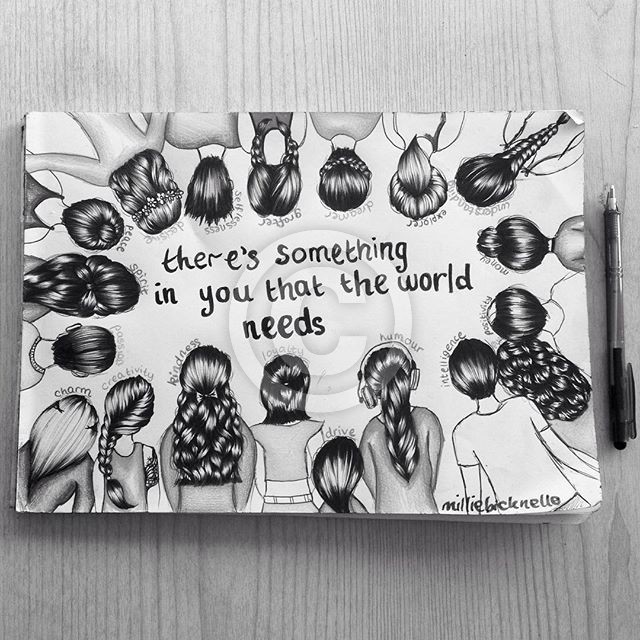 there's something
in you that the world
needs
selflessness
grafter
dreamer
explorer
understanding
peace
spirit
passion
charm
creativity
kindness
loyalty
drive
humour
intelligence
positivity
©
milliebicknello